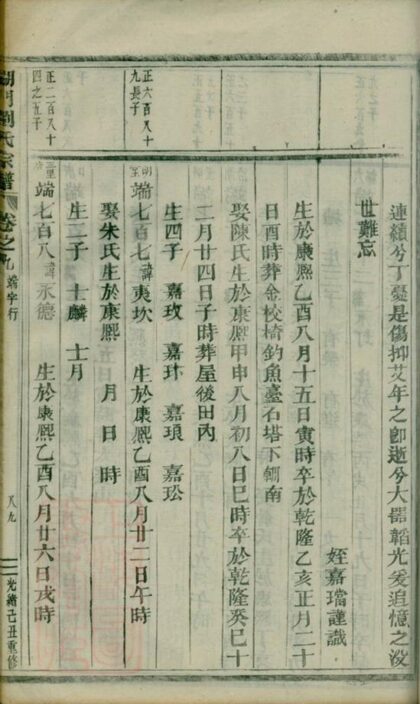 連續兮丁憂是傷抑艾年之即逝兮大器韜光爰追憶之沒
世難忘
姪嘉璫謹識
生於康熙乙酉八月十五日寅時卒於乾隆乙亥正月二十
日酉時葬金校椅釣魚臺石塔下
娶陳氏生於康熙甲申八月初八日巳時卒於乾隆癸巳十
二月廿四日子時葬屋後田內
生四子 嘉玫 嘉珎 嘉琅 嘉玜
正六百八十
九長子
端七百七諱夷坎 生於康熙乙酉八月廿二日午時
娶朱氏生於康熙 月 日 時
生二子 士麟 士月
正二百八十
四之五子
端七百八諱永德 生於康熙乙酉八月廿六日戌時
劉氏宗譜 卷之 端字行 八九 光緒己丑重修